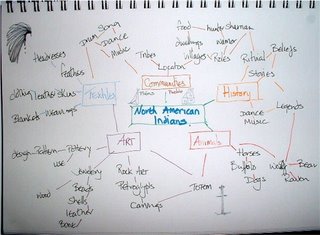 Song
Drum
Dance
Music
food
hunter
Shaman
dwellings
Warrior
Villages
Roles
Ritual
Beliefs
Stories
Headdresses
Feathers
Tribes
Location
Communities
Plains
History
Legends
Clothing
Leather/Skins
Textiles
Blankets
Weavings
North American
Indians
DANCE
MUSIC
ART
Animals
design
Pattern
Pottery
use
Horses
Buffalo
Dogs
Bear
Raven
Beading
Wood
Beads
Shells
Leather
Bones
Rock Art
Petroglyphs
Carvings
Totem